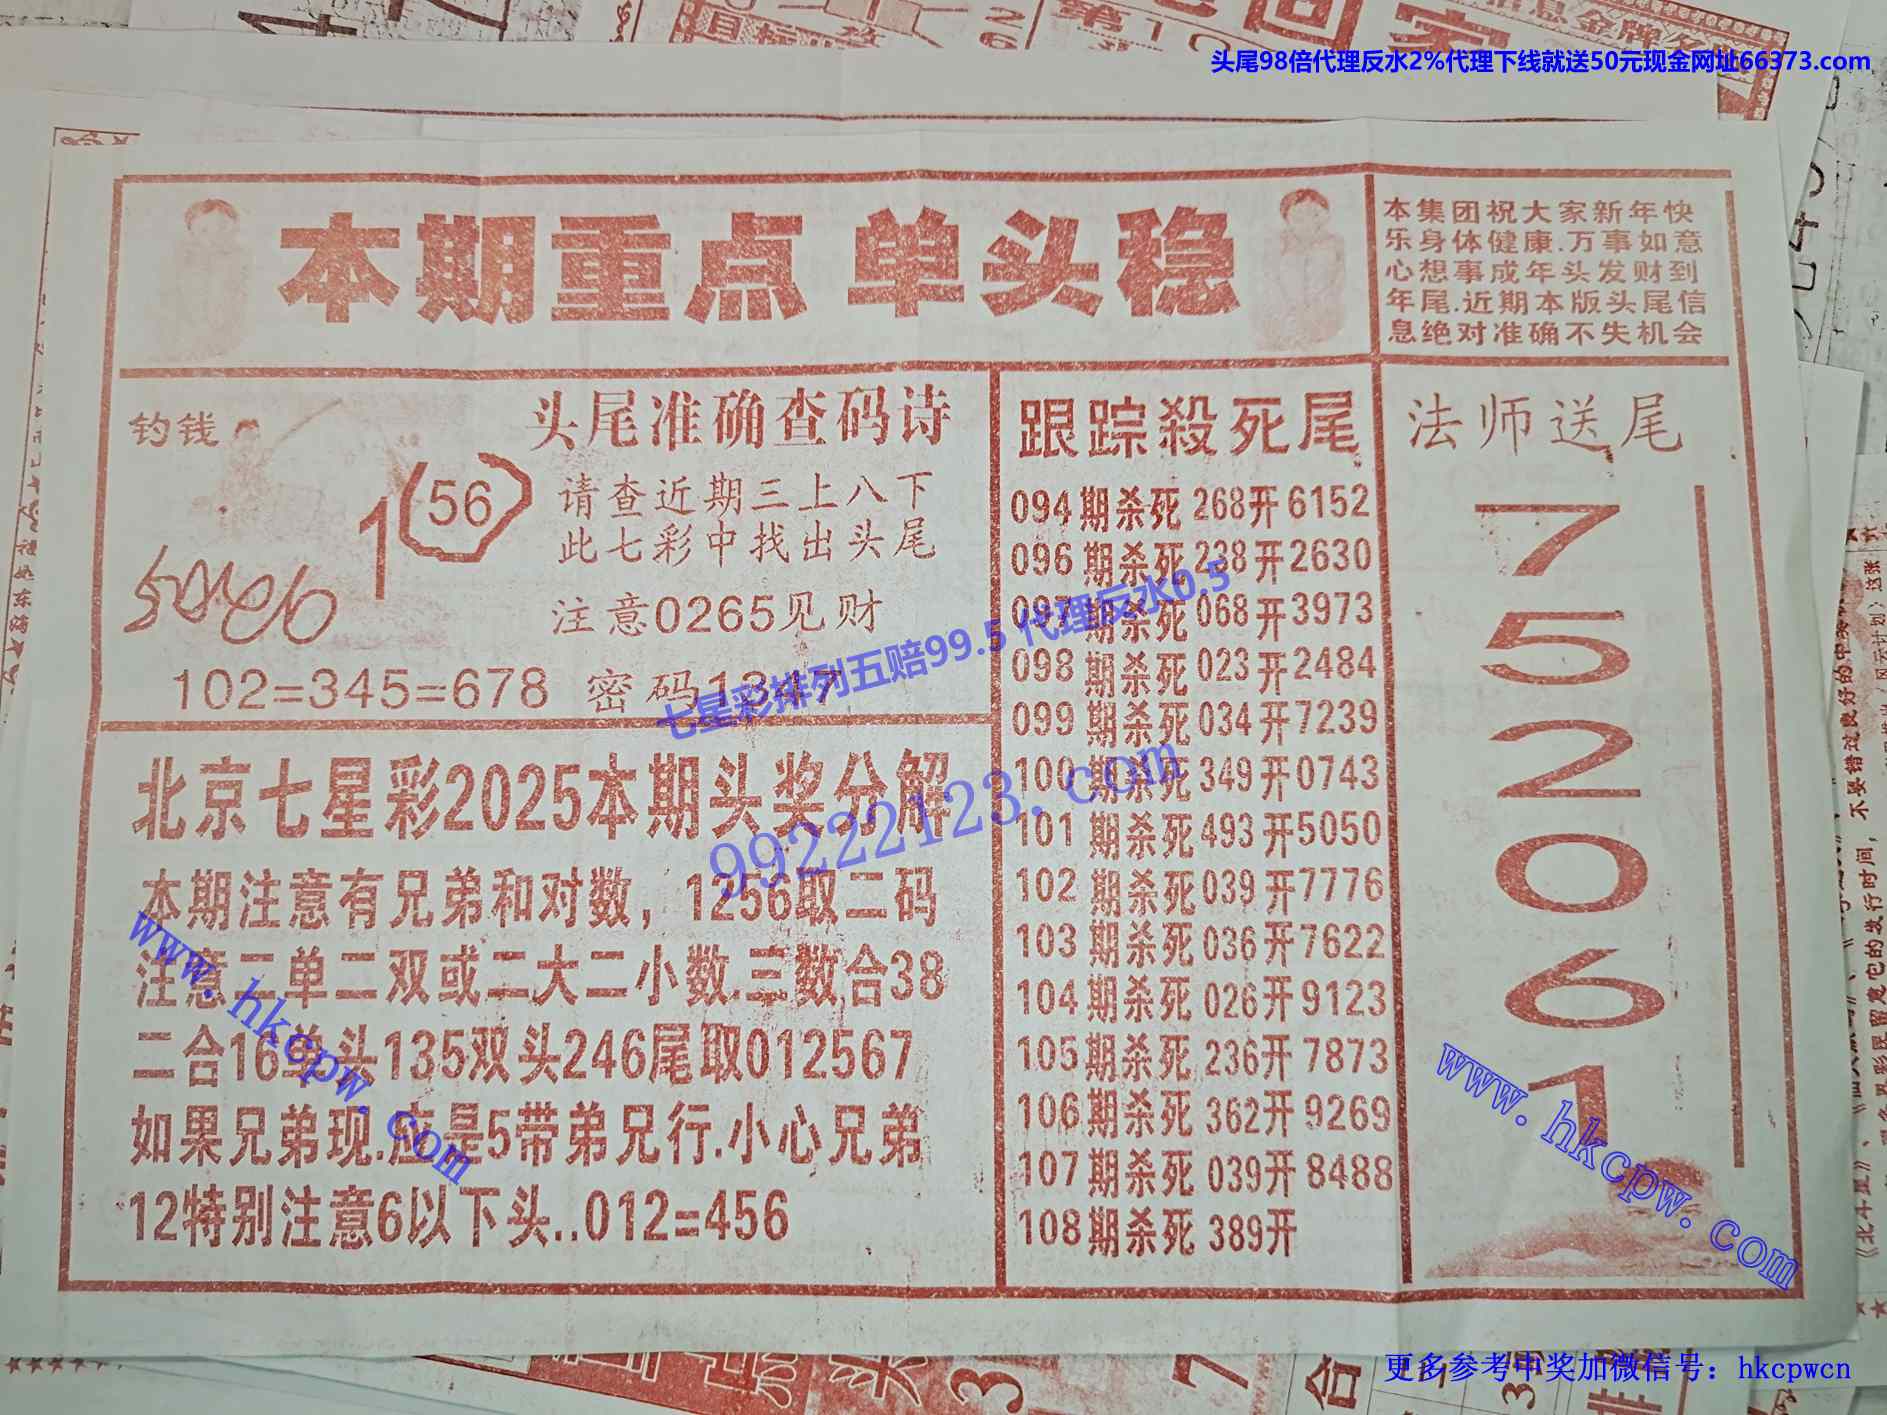 头尾98倍代理反水2%代理下线就送50元现金网址66373.com
本期重点 单头稳
本集团祝大家新年快
乐身体健康.万事如意
心想事成年头发财到
年尾.近期本版头尾信
息绝对准确不失机会
钓钱
1
56
头尾准确查码诗
请查近期三上八下
此七彩中找出头尾
注意0265见财
102=345=678 密码1347
北京七星彩2025本期头奖分解
本期注意有兄弟和对数，1256取二码
注意二单二双或二大二小数.三数合38
二合16单头135双头246尾取012567
如果兄弟现.应是5带弟兄行.小心兄弟
12特别注意6以下头..012=456
跟踪殺死尾
094期杀死268开6152
096期杀死238开2630
097期杀死068开3973
098期杀死023开2484
099期杀死034开7239
100期杀死349开0743
101期杀死493开5050
102期杀死039开7776
103期杀死036开7622
104期杀死026开9123
105期杀死236开7873
106期杀死362开9269
107期杀死039开8488
108期杀死389开
法师送尾
7
5
2
0
6
1
七星彩排列五赔99.5 代理反水0.5
99222123.com
www.hkcpw.com
www.hkcpw.com
更多参考中奖加微信号：hkcpwcn